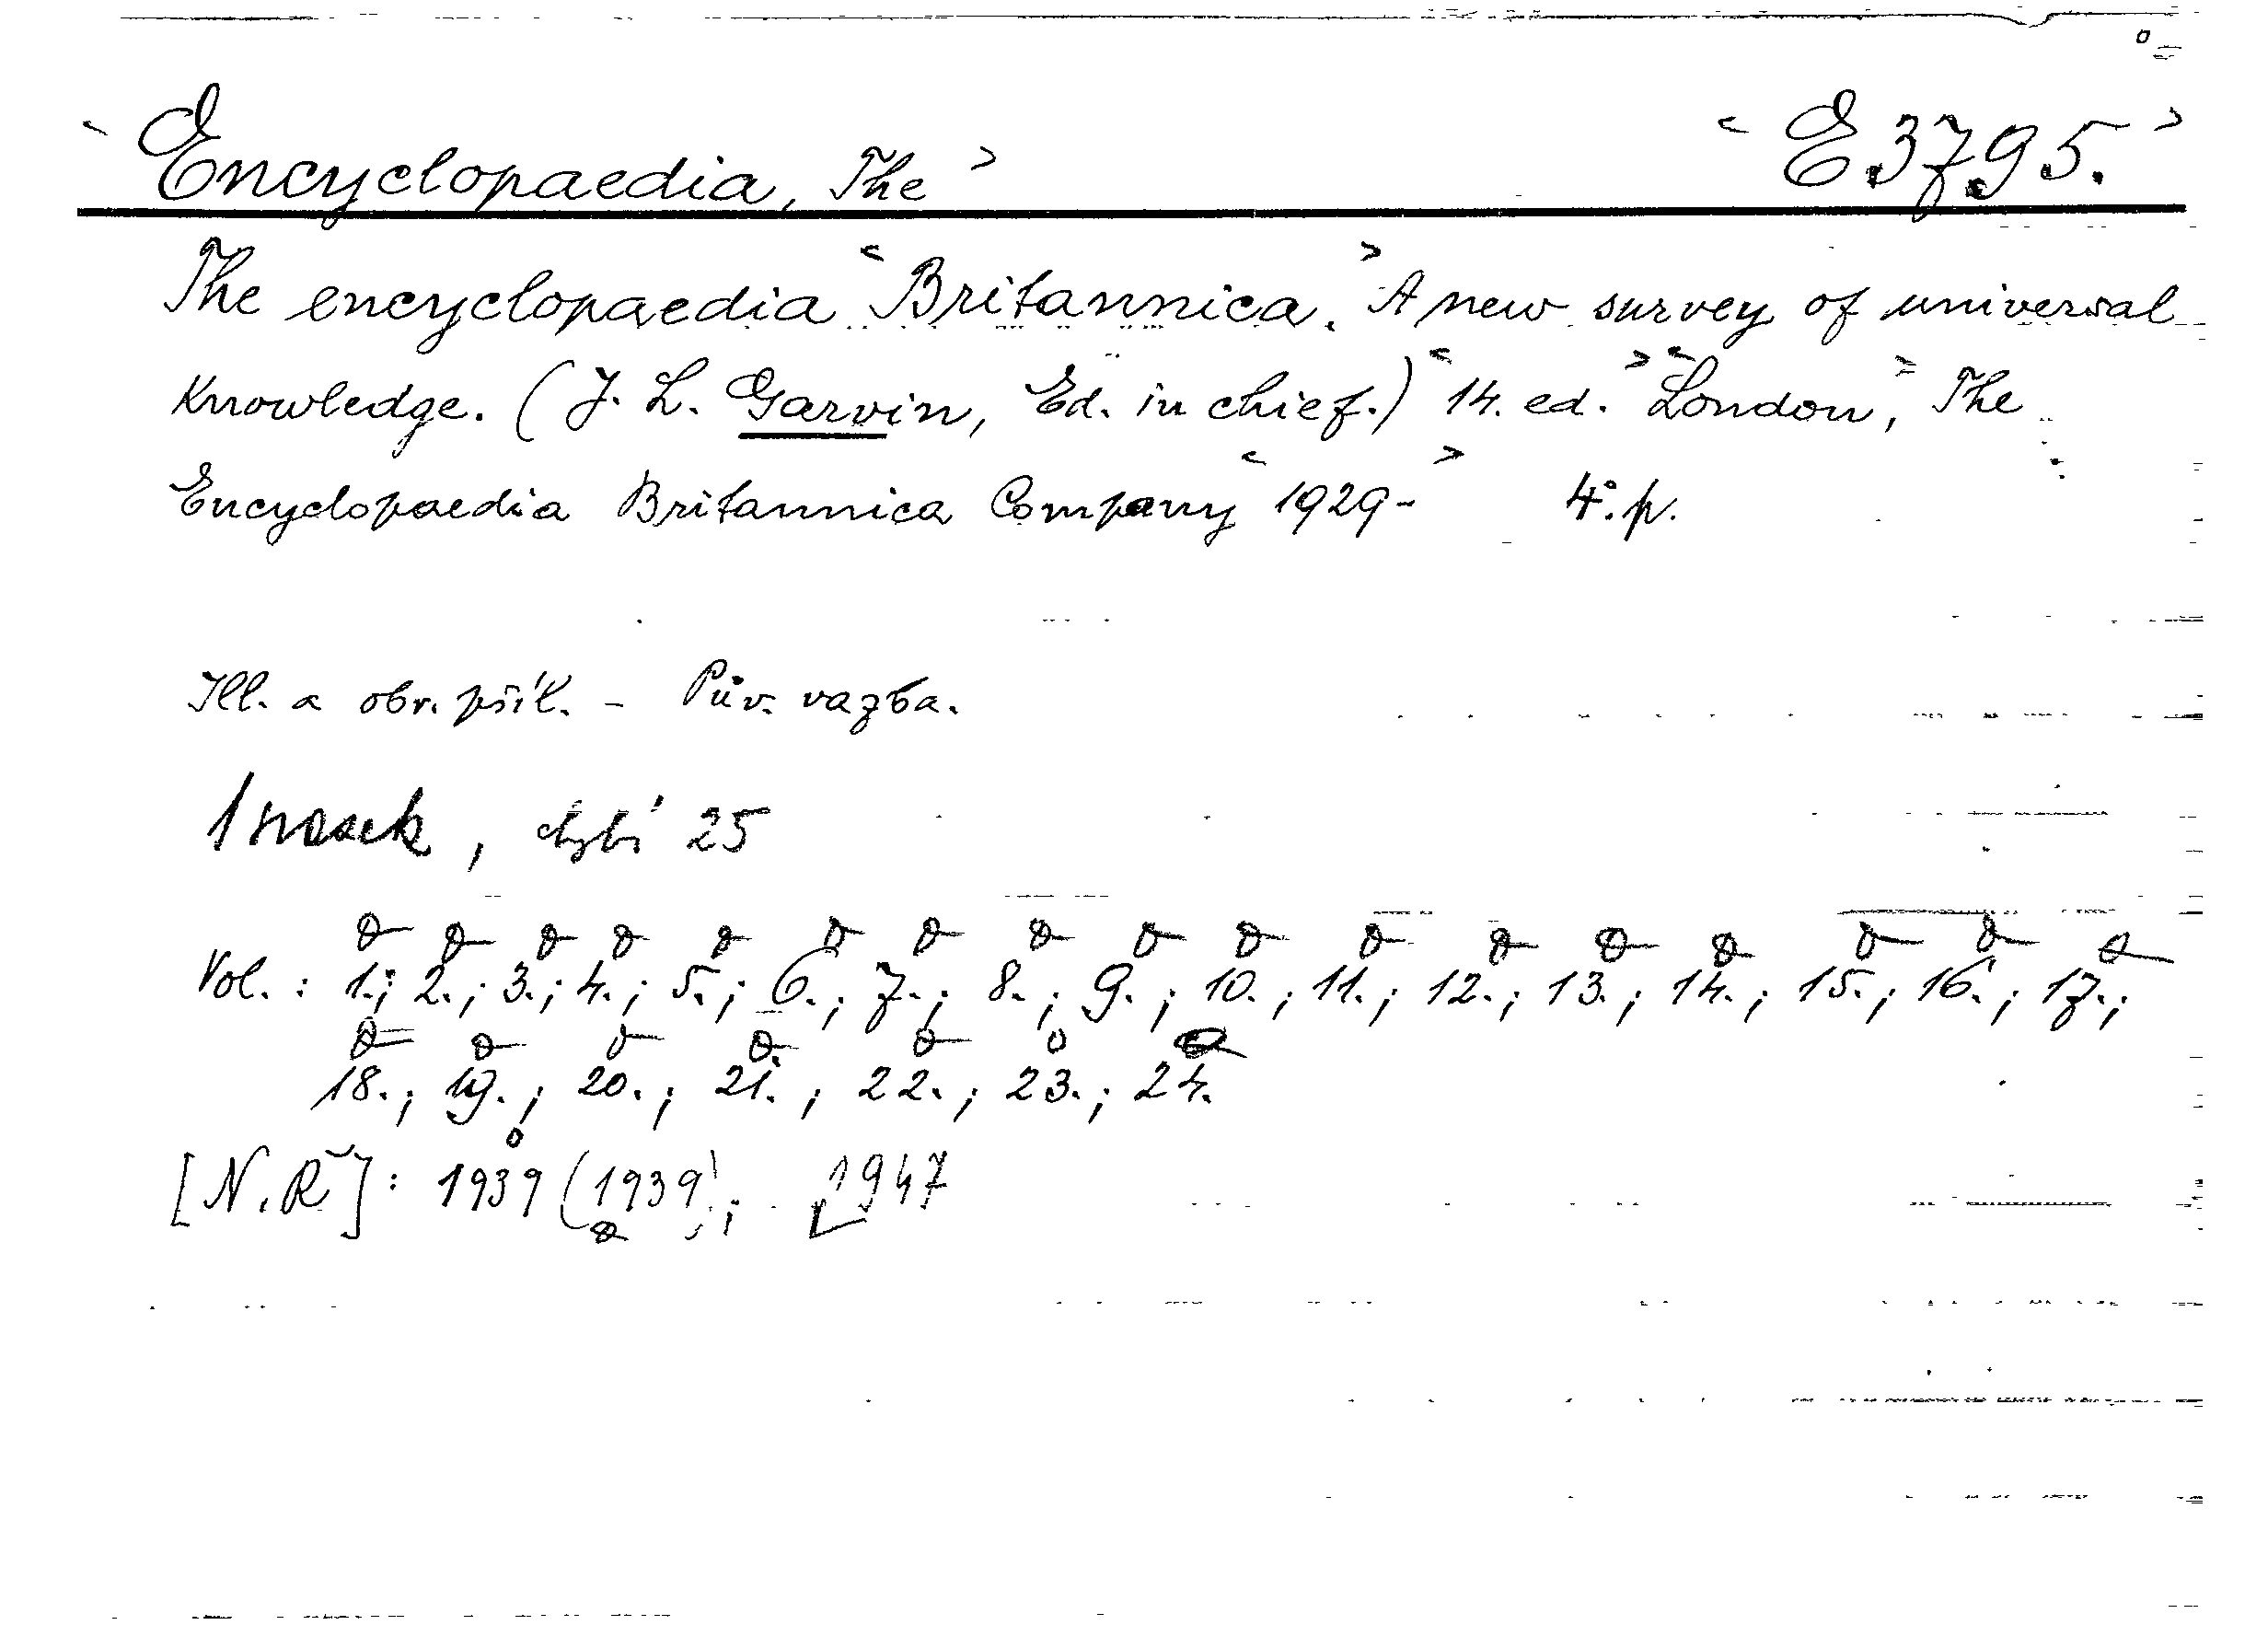 Encyclopaedia, The E.3795.
The encyclopaedia Britannica. A new survey of universal
Knowledge. (J. L. Garvin, Ed. in chief.) 14. ed. London, The
Encyclopaedia Britannica Company 1929- 4°. p.
Ill. a obr. příl. - Pův. vazba.
1 , chybí 25
Vol. : 1.; 2.; 3.; 4.; 5.; 6.; 7.; 8.; 9.; 10.; 11.; 12.; 13.; 14.; 15.; 16.; 17.;
18.; 19.; 20.; 21.; 22.; 23.; 24.
[N. Ř]: 1939 (1939); 1947